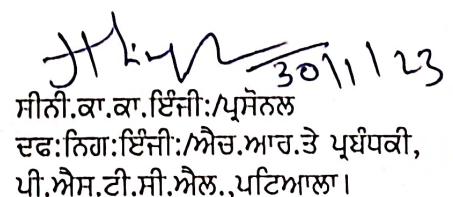 30/1/23
ਸੀਨੀ.ਕਾ.ਕਾ.ਇੰਜੀ:/ਪ੍ਰਸੋਨਲ
ਦਫ:ਨਿਗ:ਇੰਜੀ:/ਐਚ.ਆਰ.ਤੇ ਪ੍ਰਬੰਧਕੀ,
ਪੀ.ਐਸ.ਟੀ.ਸੀ.ਐਲ.,ਪਟਿਆਲਾ।